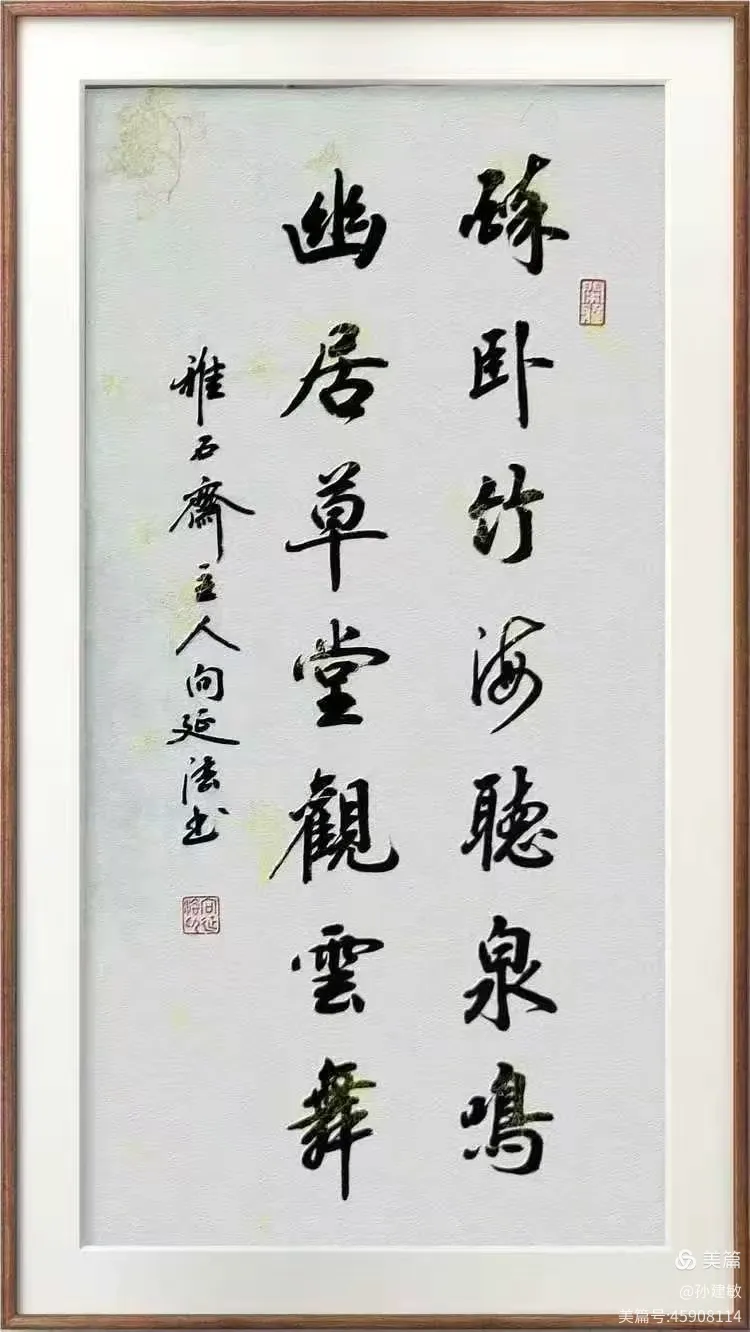 醉卧竹海聽泉鳴
幽居草堂觀雲舞
雅石齋主人向延法书
向延法印
美篇
@孙建敏
美篇号:45908114